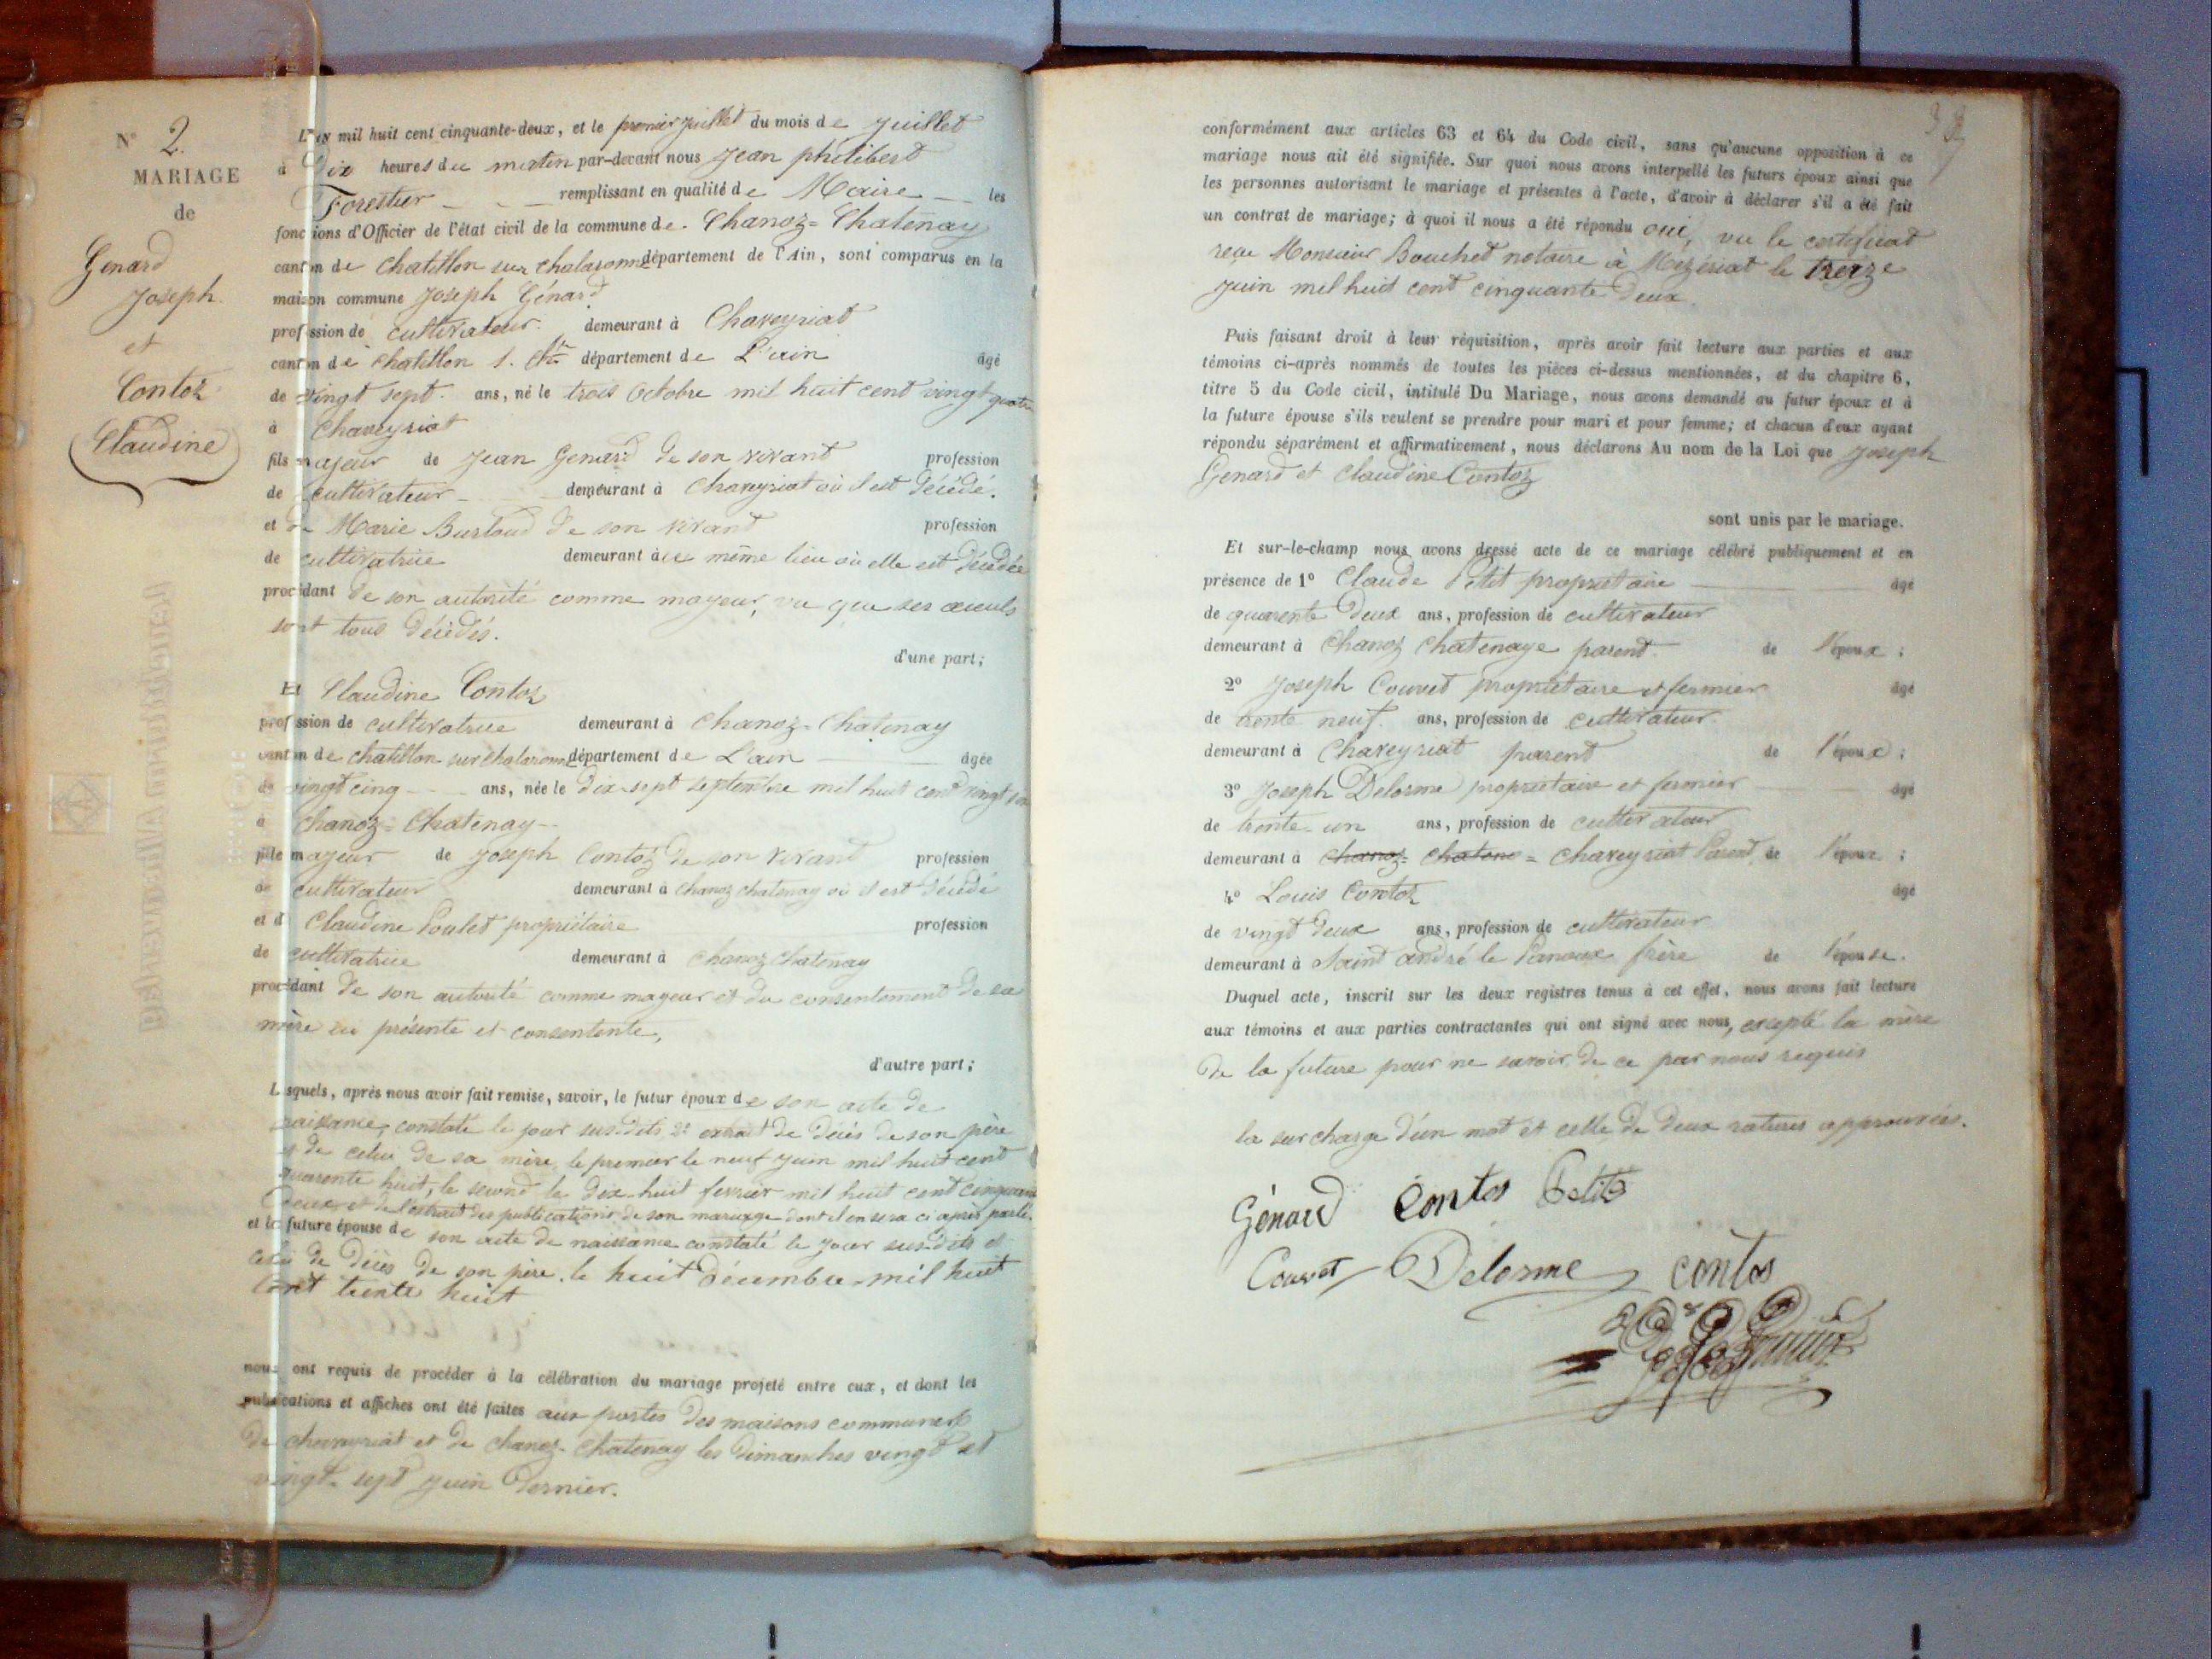 N° 2.
MARIAGE
de
Genard
Joseph
et
Contoz
Claudine
L'an mil huit cent cinquante-deux, et le premier juillet du mois de Juillet
à Dix heures du matin par-devant nous Jean philibert
Forestier remplissant en qualité de Maire les
fonctions d'Officier de l'état civil de la commune de Chanoz-Chatenay
canton de Chatillon sur chalaronne département de l'Ain, sont comparus en la
maison commune Joseph Génard
profession de cultivateur demeurant à Chaveyriat
canton de Chatillon s. Ch. département de L'ain âgé
de vingt sept ans, né le trois Octobre mil huit cent vingt quatre
à Chaveyriat
fils majeur de Jean Genard de son vivant profession
de cultivateur demeurant à Chaveyriat où il est décédé.
et de Marie Burtoud de son vivant profession
de cultivatrice demeurant à ce même lieu où elle est décédée
procédant de son autorité comme mayeur, vu que ses aieuls
sont tous décédés.
d'une part;
Et Claudine Contoz
profession de cultivatrice demeurant à Chanoz-Chatenay
canton de chatillon sur chalaronne département de L'ain âgée
de vingt cinq ans, née le dix-sept septembre mil huit cent vingt
à Chanoz-Chatenay
fille mayeur de Joseph Contoz de son vivant profession
de cultivateur demeurant à Chanoz chatenay où il est décédé
et d Claudine Poulet propriétaire profession
de cultivatrice demeurant à Chanoz Chatenay
procédant de son autorité comme mayeur et du consentement de sa
mère ici présente et consentente,
d'autre part;
Lesquels, après nous avoir fait remise, savoir, le futur époux de son acte de
naissance, constaté le jour susdits 2° extrait de décès de son père
et de celui de sa mère, le premier le neuf juin mil huit cent
quarente huit, le second le dix-huit fevrier mil huit cent cinquante
deux et de l'extrait des publications de son mariage dont il en sera ci après parlé.
et la future épouse de son acte de naissance constaté le jour susdits et
celui de décès de son père, le huit Décembre mil huit
cent trente huit
nous ont requis de procéder à la célébration du mariage projeté entre eux, et dont les
publications et affiches ont été faites aux portes des maisons communes
de chaveyriat et de chanoz-Chatenay les dimanches vingt et
vingt-sept juin dernier.
conformément aux articles 63 et 64 du Code civil, sans qu'aucune opposition à ce
mariage nous ait été signifiée. Sur quoi nous avons interpellé les futurs époux ainsi que
les personnes autorisant le mariage et présentes à l'acte, d'avoir à déclarer s'il a été fait
un contrat de mariage; à quoi il nous a été répondu oui, vu le certificat
reçu Monsieur Bouchet notaire à Mezériat le treize
juin mil huit cent cinquante deux.
Puis faisant droit à leur réquisition, après avoir fait lecture aux parties et aux
témoins ci-après nommés de toutes les pièces ci-dessus mentionnées, et du chapitre 6,
titre 5 du Code civil, intitulé Du Mariage, nous avons demandé au futur époux et à
la future épouse s'ils veulent se prendre pour mari et pour femme; et chacun d'eux ayant
répondu séparément et affirmativement, nous déclarons Au nom de la Loi que Joseph
Genard et Claudine Contoz
sont unis par le mariage.
Et sur-le-champ nous avons dressé acte de ce mariage célébré publiquement et en
présence de 1° Claude Petit propriétaire âgé
de quarente deux ans, profession de cultivateur
demeurant à Chanoz Chatenaye parent de l'époux;
2° Joseph Couvet propriétaire et fermier âgé
de trente neuf ans, profession de cultivateur
demeurant à Chaveyriat parent de l'époux;
3° Joseph Delorme propriétaire et fermier âgé
de trente-un ans, profession de cultivateur
demeurant à Chanoz-Chatene = Chaveyriat Parent, de l'époux;
4° Louis Contoz âgé
de vingt deux ans, profession de cultivateur
demeurant à Saint andré le Panoux frère de l'épouse.
Duquel acte, inscrit sur les deux registres tenus à cet effet, nous avons fait lecture
aux témoins et aux parties contractantes qui ont signé avec nous, excepté la mère
de la future pour ne savoir de ce par nous requis
la surcharge d'un mot et celle de deux ratures approuvées.
Génard Contos Petit
Couvet Delorme contos